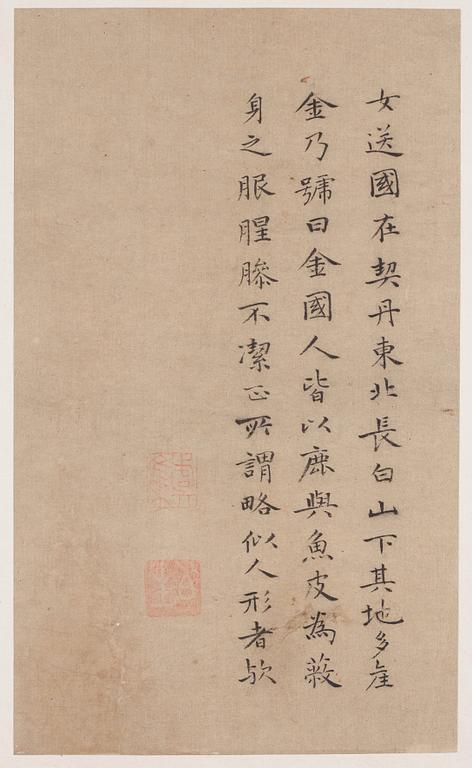 女送國在契丹東北長白山下其地多產
金乃號曰金國人皆以鹿與魚皮為蔽
身之服腥臊不潔正所謂略似人形者欤